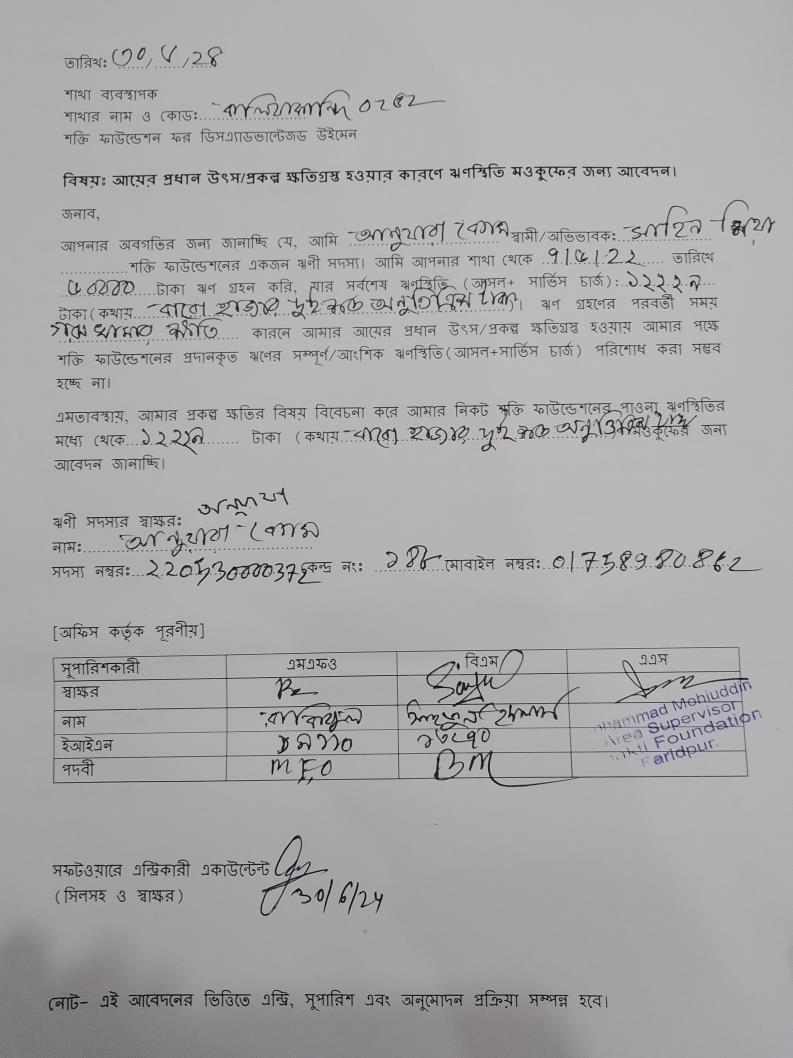 তারিখ: ৩০/৬/২৪
শাখা ব্যবস্থাপক
শাখার নাম ও কোড: বালিয়াকান্দি 0২৫২
শক্তি ফাউন্ডেশন ফর ডিসএ্যাডভান্টেজড উইমেন
বিষয়: আয়ের প্রধান উৎস/প্রকল্প ক্ষতিগ্রস্থ হওয়ার কারণে ঋণস্থিতি মওকুফের জন্য আবেদন।
জনাব,
আপনার অবগতির জন্য জানাচ্ছি যে, আমি আনুয়ারা বেগম স্বামী/অভিভাবক: সাহিন
শক্তি ফাউন্ডেশনের একজন ঋনী সদস্য। আমি আপনার শাখা থেকে ৭/৫/২২ তারিখে
৫০০০০ টাকা ঋণ গ্রহন করি, যার সর্বশেষ ঋণস্থিতি (আসল+ সার্ভিস চার্জ): ১২২২৯
টাকা(কথায় বারো হাজার দুই শত উনত্রিশ টাকা)। ঋণ গ্রহণের পরবর্তী সময়
গরু খামার ক্ষতি কারনে আমার আয়ের প্রধান উৎস/প্রকল্প ক্ষতিগ্রস্ত হওয়ায় আমার পক্ষে
শক্তি ফাউন্ডেশনের প্রদানকৃত ঋণের সম্পূর্ন/আংশিক ঋণস্থিতি(আসল+সার্ভিস চার্জ) পরিশোধ করা সম্ভব
হচ্ছে না।
এমতাবস্থায়, আমার প্রকল্প ক্ষতির বিষয় বিবেচনা করে আমার নিকট শক্তি ফাউন্ডেশনের পাওনা ঋণস্থিতির
মধ্যে থেকে ১২২২৯ টাকা (কথায় বারো হাজার দুই শত উনত্রিশ টাকা) মওকুফের জন্য
আবেদন জানাচ্ছি।
ঋনী সদস্যর স্বাক্ষর:
নাম: আনুয়ারা বেগম
সদস্য নম্বর: 220530000372 কেন্দ্র নং: মোবাইল নম্বর: 01758980862
[অফিস কর্তৃক পূরনীয়]
সুপারিশকারী এমএফও বিএম এএস
স্বাক্ষর
নাম
ইআইএন ১৬২৭০
পদবী MFO BM
Mohammad Mohiuddin
Area Supervisor
Shakti Foundation
Faridpur.
সফটওয়ারে এন্ট্রিকারী একাউন্টেন্ট
(সিলসহ ও স্বাক্ষর) 30/6/24
নোট- এই আবেদনের ভিত্তিতে এন্ট্রি, সুপারিশ এবং অনুমোদন প্রক্রিয়া সম্পন্ন হবে।